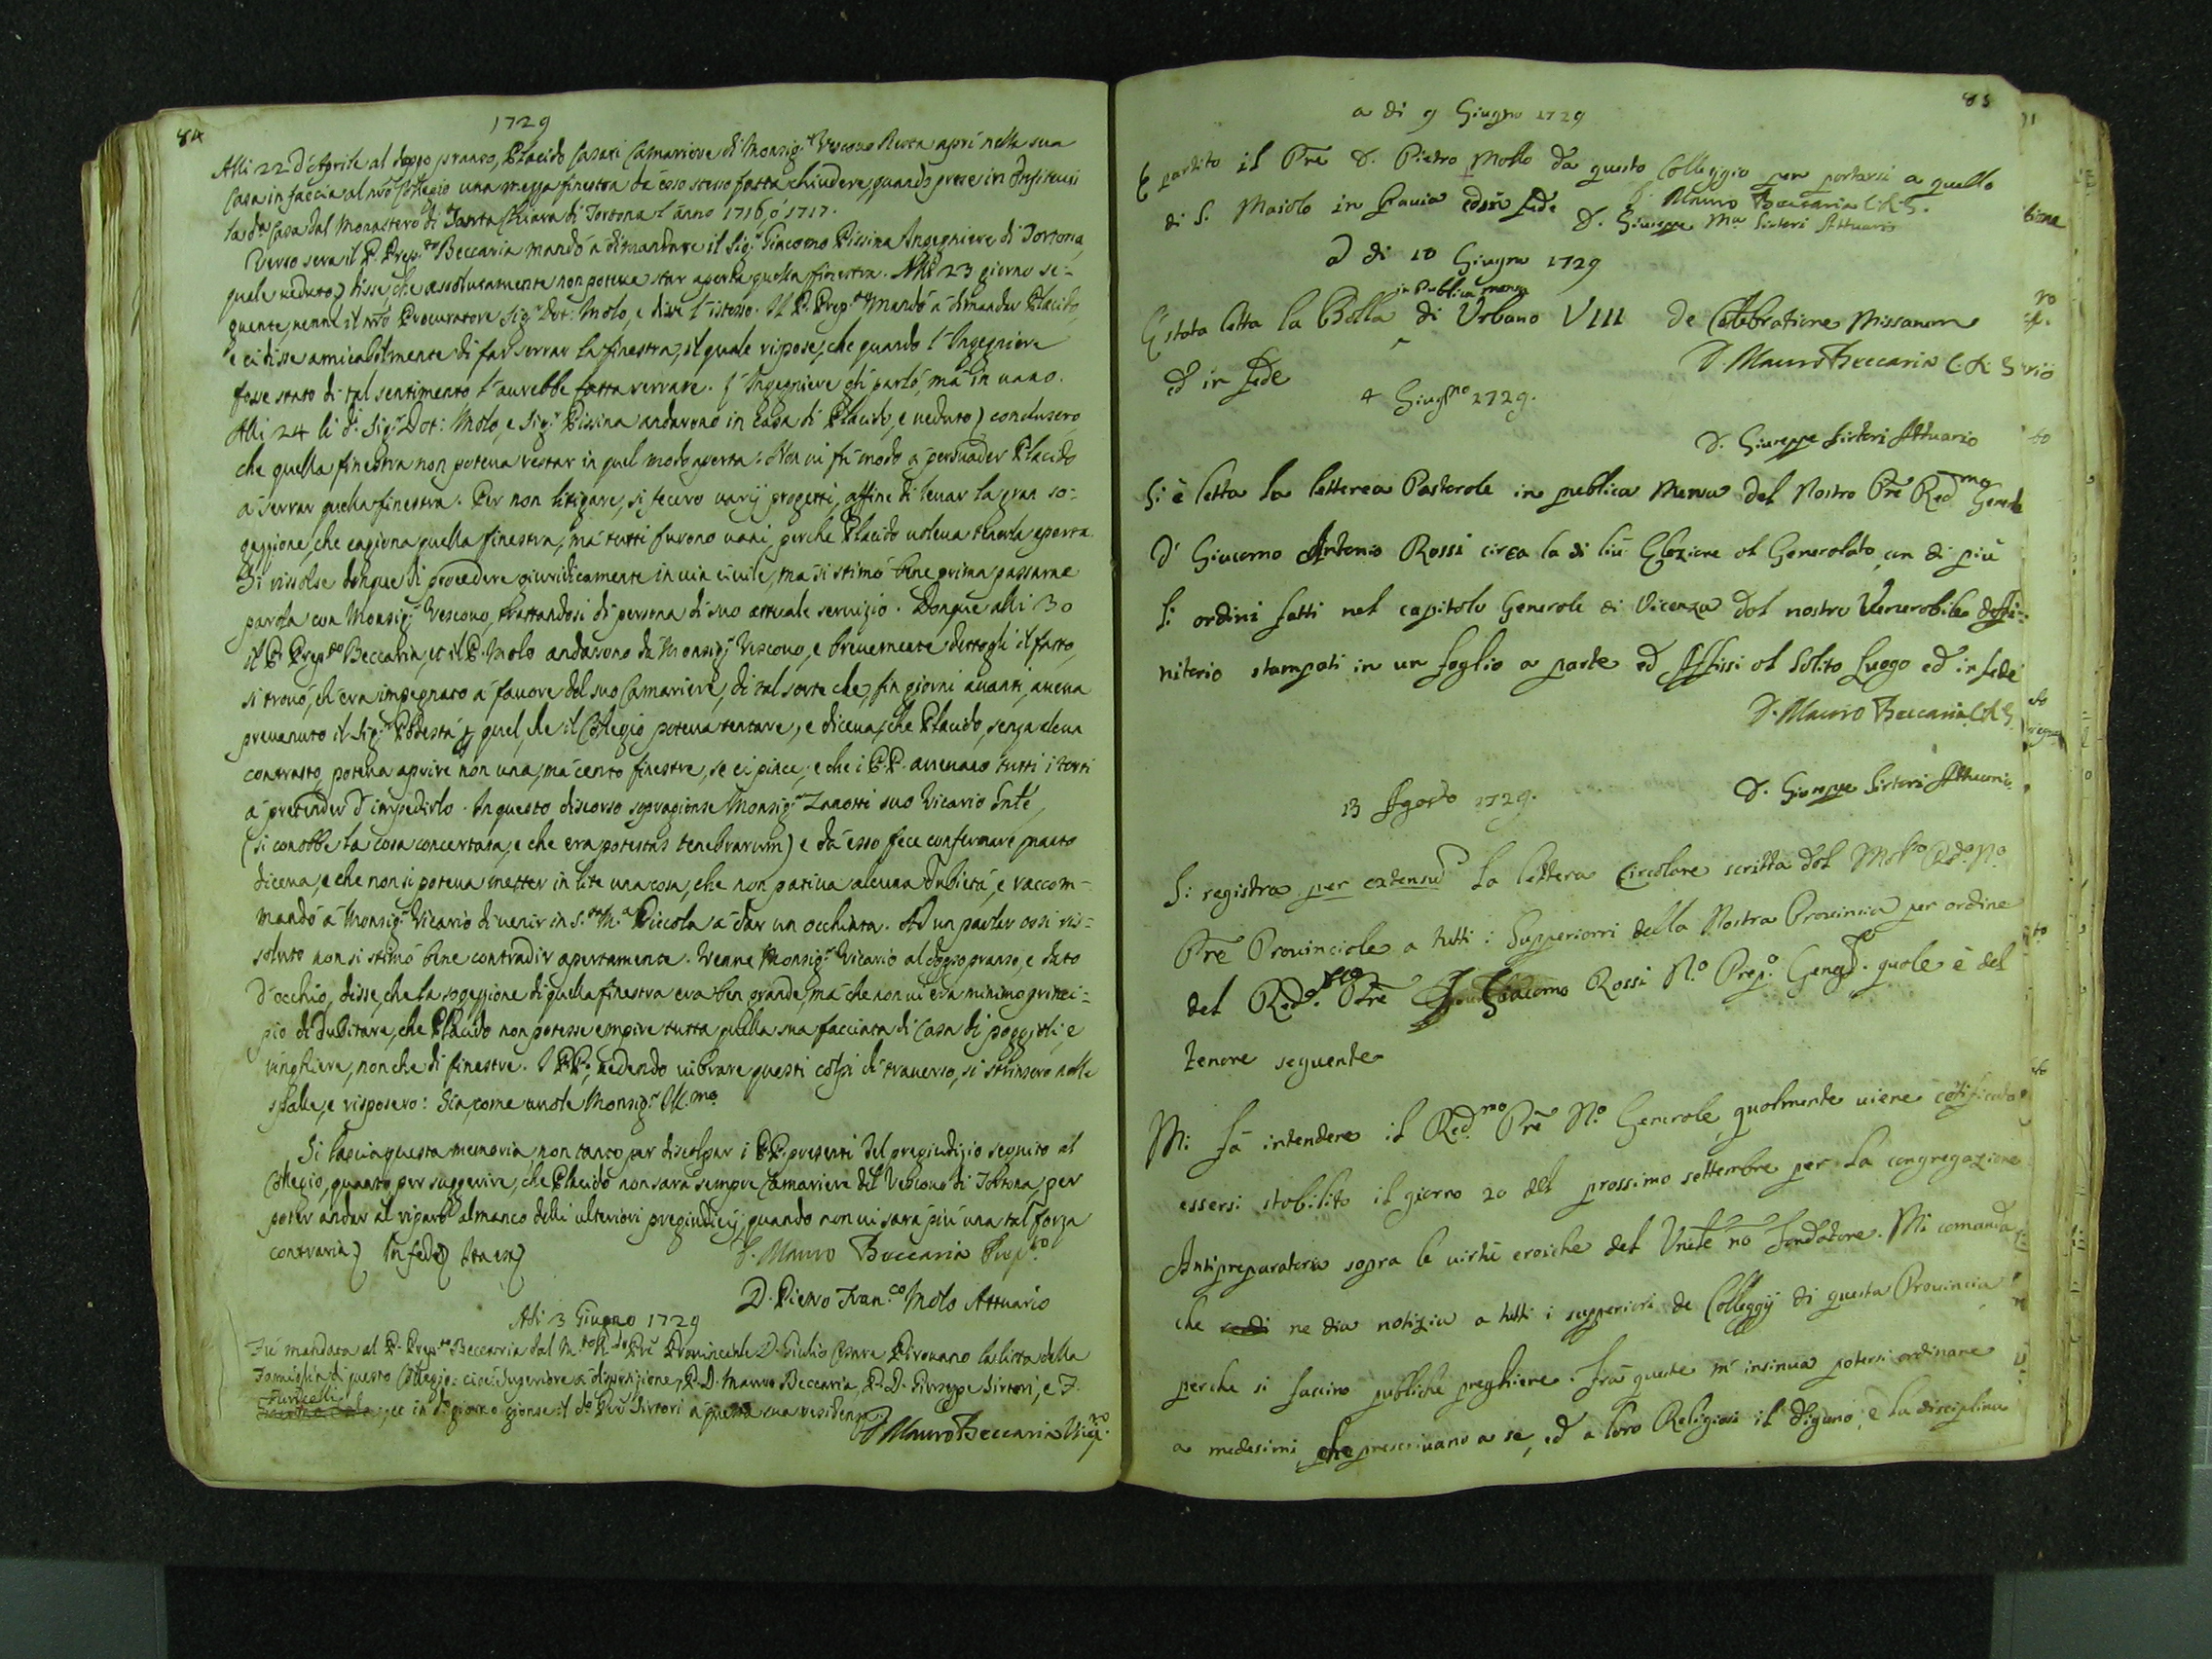 84
1729
Alli 22 d'Aprile al doppo pranzo, Placido Casari Camariere di Monsig.r Vescovo Resta aprì nella sua
Casa in faccia al nrõ Collegio una mezza finestra da esso stesso fatta chiudere, quando prese in
la d.a Casa dal Monastero di Santa Chiara di Tortona l'anno 1716, ò 1717.
Verso sera il P. Prep.to Beccaria mandò à dimandare il Sig.r Giacomo Pissina Ingegniere di Tortona,
quale veduto disse, che assolutamente non poteva star aperta quella finestra. Alli 23 giorno se-
guente, venne il nrõ Procuratore Sig.r Dot: Molo, e disse l'istesso. Il P. Prep.to mandò à dimandar Placido,
e ci disse amicabilmente di far serrar la finestra, il quale rispose, che quando l'Ingegniere
fosse stato di tal sentimento l'avrebbe fatta serrare. L'Ingegniere gli parlò, mà in vano.
Alli 24 li d.i Sig.ri Dot: Molo, e Sig.r Pissina andarono in Casa di Placido, e veduto conclusero
che quella finestra non poteva restar in quel modo aperta: Non vi fù modo à persuader Placido
à serrar quella finestra. Per non litigare, si fecero varij progetti, affine di levar la gran so-
geppione, che cagiona quella finestra, mà tutti furono vani, perche Placido voleva tenerla aperta.
Si rissolse dunque di procedere giuridicamente in via civile, mà si stimò bene prima passarne
parola con Monsig.r Vescovo, trattandosi di persona di suo attuale servizio. Donque alli 30
il P. Prep.to Beccaria, et il P. Molo andarono da Monsig.r Vescovo, e brevemente dettogli il fatto,
si trovò, ch'era impegnato à favore del suo Camariere, di tal sorte che, fin giorni avanti, aveva
prevenuto il Sig.r Podestà quel, che il Collegio poteva tentare, e diceva, che Placido, senza alcun
contrasto, poteva aprire non una, mà cento finestre, se ci piace; e che i P.P. avevano tutti i torti
à pretender d'impedirlo. In questo discorso sopragionse Monsig.r Zanotti suo Vicario Gnle,
(si conobbe la cosa concertata, e che era potestas tenebrarum) e da esso fece confermare quanto
diceva, e che non si poteva metter in lite una cosa, che non pativa alcuna dubietà, e raccom-
mandò à Monsig.r Vicario di venir in S.ta M.a Piccola à dar un occhiata. Ad un parlar così ris-
soluto non si stimò bene contradir apertamente. Venne Monsig.r Vicario al doppo pranso, e dato
d'occhio, disse, che la sogeppione di quella finestra era ben grande, mà che non vi era minimo princi-
pio di dubitare, che Placido non potesse empire tutta quella sua facciata di Casa di poggioli, e
ringhiere, non che di finestre. I PP. vedendo vibrare questi colpi di traverso, si strinsero nelle
spalle, e risposero: Sia, come vuole Monsig.r Ill.mo
Si lascia questa memoria, non tanto per discolpar i PP. presenti del pregiudizio seguito al
Collegio, quanto per suggerire, che Placido non sarà sempre Camariere del Vescovo di Tortona, per
poter andar al riparo almanco delli ulteriori pregiudicij, quando non vi sarà più una tal forza
contraria. In fede Ita est
D. Mauro Beccaria Prep.to
D. Pietro Fran.co Molo Attuario
Adi 3 Giugno 1729
Fù mandata al P. Prep.to Beccaria dal M.to R.do Prẽ Provinciale D. Giulio Cesare Pirovano la lista della
Famiglia di questo Collegio: cioè: Superiore à disposizione, P. D. Mauro Beccaria, P. D. Giuseppe Sirtori, e F.
Furicelli; et in d.o giorno gionse il d.o Prẽ Sirtori à questa sua residenza.
D Mauro Beccaria
85
a di 9 Giugno 1729
È partito il Prẽ D. Pietro Mollo da questo Colleggio per portarsi a quello
di S. Maiolo in Pavia ed in fede D. Mauro Beccaria C.R.S.
D. Giuseppe M.a Sirtori Attuario
A di 10 Giugno 1729
in publica mensa
È stata letta la Bolla di Urbano VIII De Cellebratione Missarum
ed in fede D. Mauro Beccaria C.R.S
4 Giug.no 1729.
D. Giuseppe Sirtori Attuario
Si è letta la letterea Pastorale in publica Mensa del Nostro Prẽ Red.mo Generale
D. Giacomo Antonio Rossi circa la di lui Elezione al Generalato, con di più
li ordini fatti nel capitolo Generale di Vicenza dal nostro Venerabile deffi-
nitorio stampati in un foglio a parte ed Affissi al solito luogo ed in fede
D. Mauro Beccaria C.R.S
D. Giuseppe Sirtori Attuario.
13 Agosto 1729.
Si registra per extensũ la lettera Circolare scritta dal Mol.to Red.o N.o
Prẽ Provinciale a tutti i Supperiorri della Nostra Provincia per ordine
del Red.mo Prẽ Giacomo Rossi N.o Prep.o Gene.le quale è del
tenore seguente
Mi fà intendere il Red.mo Prẽ N.o Generale, qualmente viene certificato
essersi stabilito il giorno 20 del prossimo settembre per la congregazione
Antipreparatoria sopra le virtù eroiche del Vnẽle nõ fondatore. Mi comanda
che ne dia notizia a tutti i supperiori de Colleggij di questa Provincia
perche si faccino pubbliche preghiere. Frà queste m'insinua potersi ordinare
a medesimi, che prescrivano a se, ed a loro Religiosi il diguno, e la disciplina